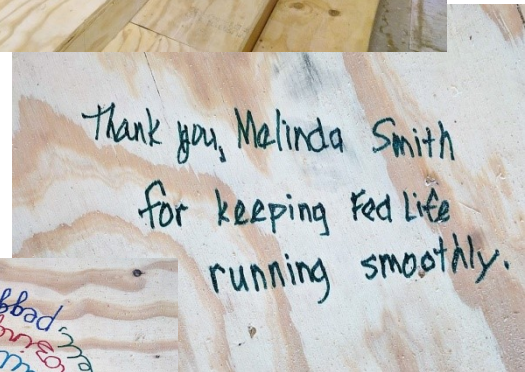 Thank you, Malinda Smith
for keeping Fed Life
running smoothly.